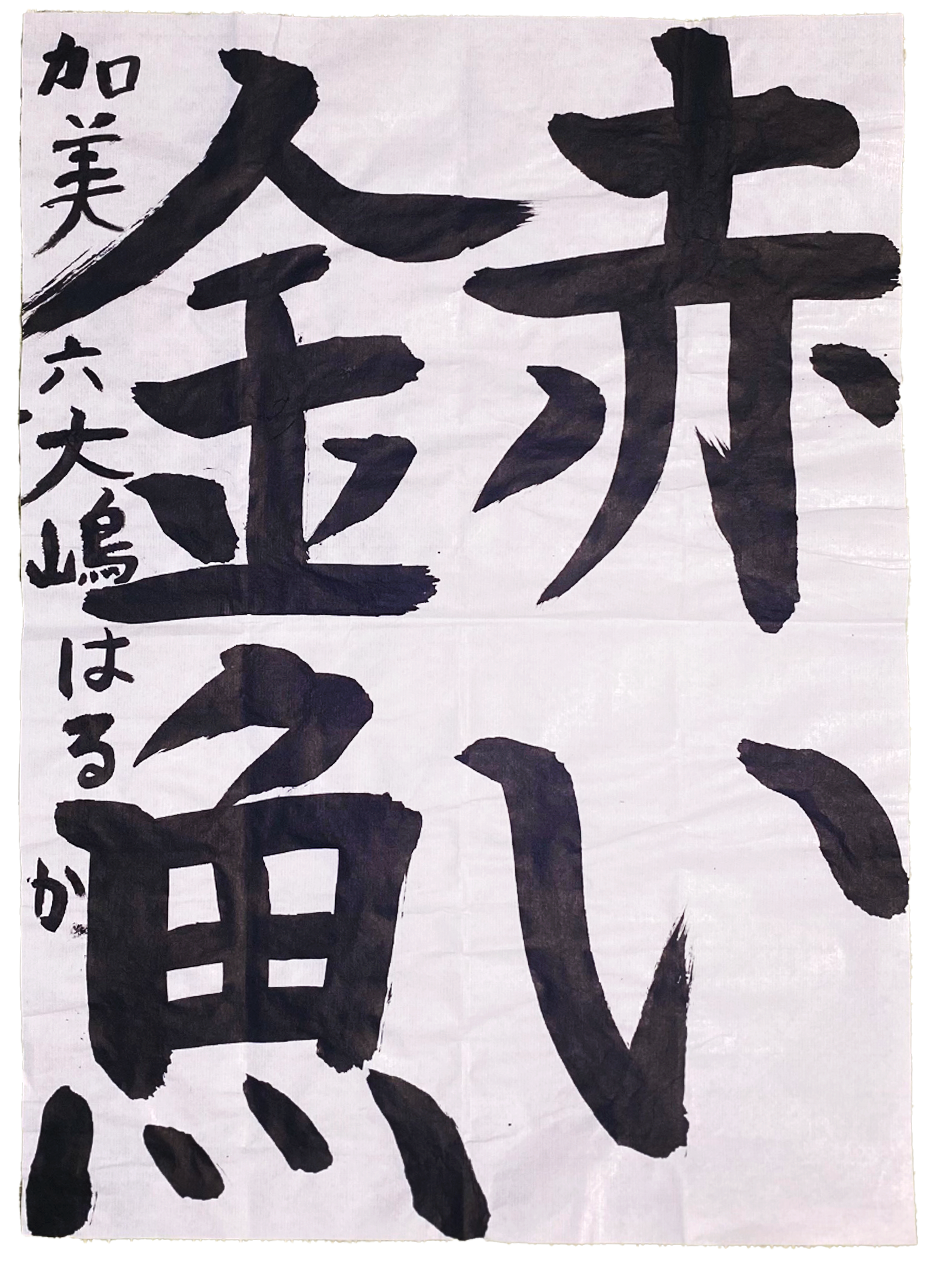 赤い
金魚
加美 六 大嶋はるか